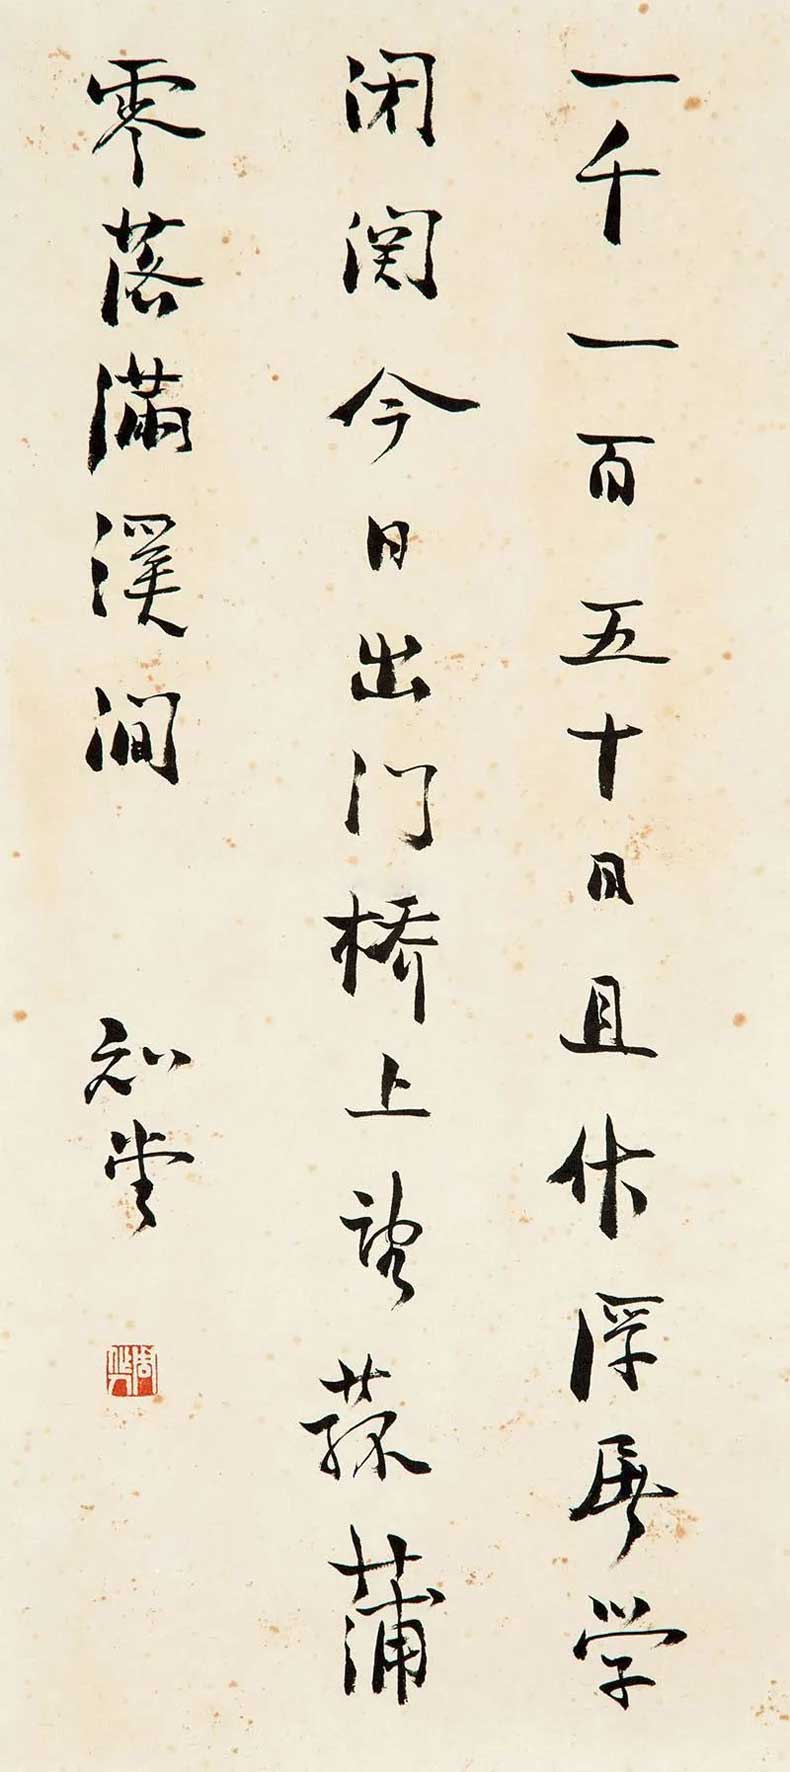 一千一百五十日且作浮屠学
闭関今日出门桥上望菰蒲
零落滿溪间
知堂
周作人